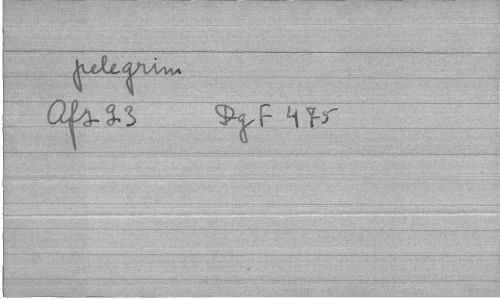 pelegrim
Afs 93 DgF 475